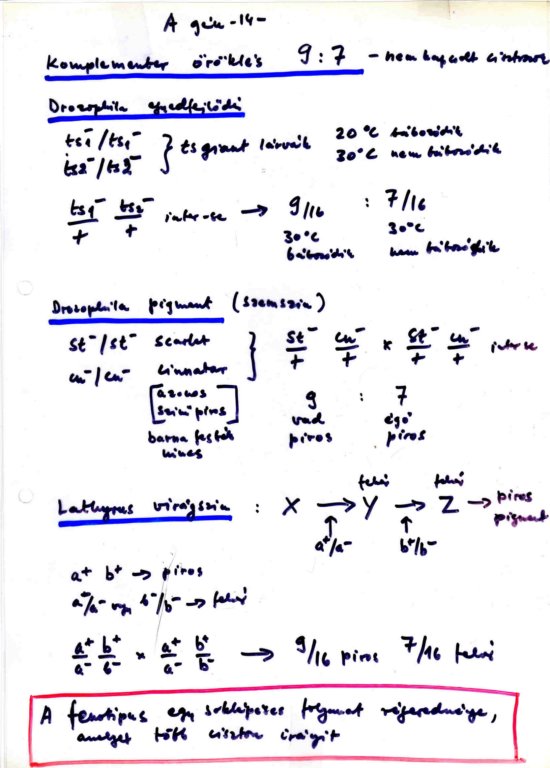 A gén -14-
Komplementer öröklés 9:7 - nem kapcsolt cisztronok
Drozophila egyedfejlődés
ts1⁻/ts1⁻ } ts giant lárvák 20°C bábozódik
ts2⁻/ts2⁻ 30°C nem bábozódik
ts1⁻/+ ts2⁻/+ inter-se → 9/16 : 7/16
30°C 30°C
bábozódik nem bábozódik
Drozophila pigment (szemszín)
st⁻/st⁻ scarlet } st⁻/+ cn⁻/+ × st⁻/+ cn⁻/+ inter se
cn⁻/cn⁻ cinnabar
[azonos
színű piros] 9 : 7
vad égő
barna festék piros piros
nincs
fehér fehér
Lathyrus virágszín : X → Y → Z → piros pigment
↑ ↑
a⁺/a⁻ b⁺/b⁻
a⁺ b⁺ → piros
a⁻/a⁻ vagy b⁻/b⁻ → fehér
a⁺/a⁻ b⁺/b⁻ × a⁺/a⁻ b⁺/b⁻ → 9/16 piros 7/16 fehér
A fenotípus egy soklépéses folyamat végeredménye,
amelyet több cisztron irányít